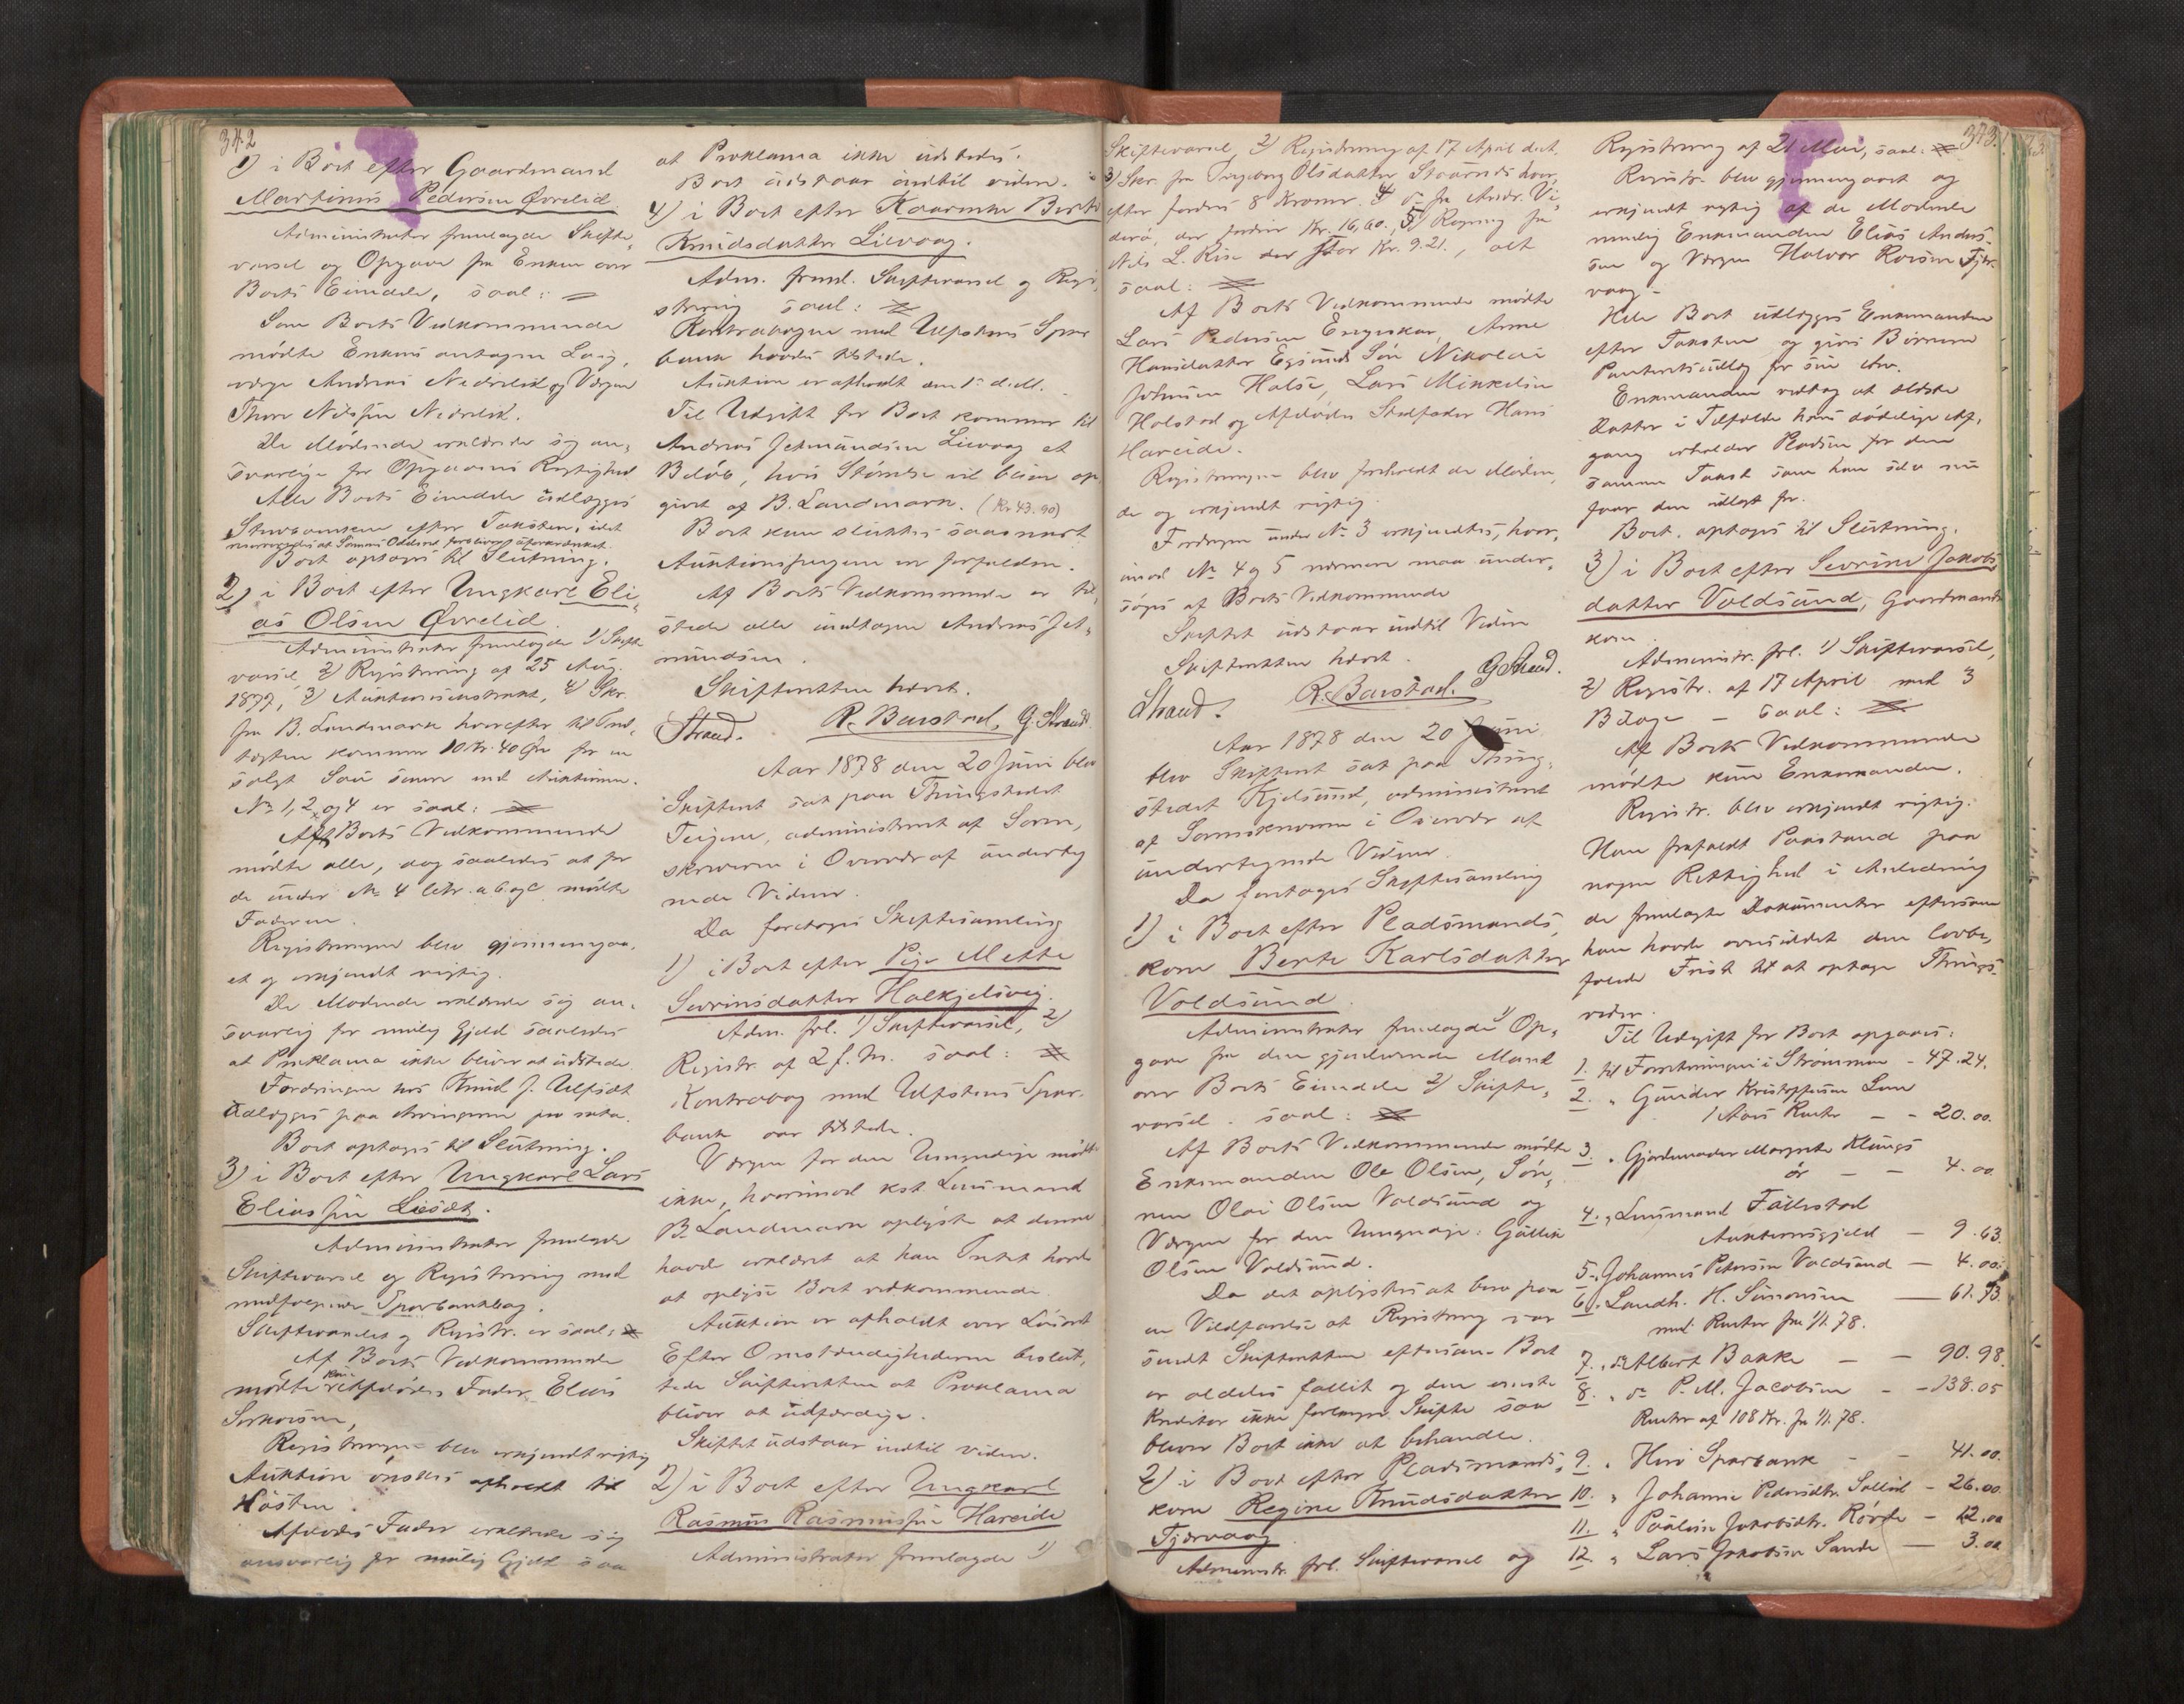 342
1) i Boet efter Gaardmand
Martinus Pedersen Øvrelid.
Administrator fremlagde Skifte,
varsel og Opgave fra Enken over
Boets Eiendele, saal:
Som Boets Vedkommende
mødte Enkens antagne Laug,
værge Andreas Nedrelid og Værgen
Thore Nilssen Nedrelid.
De Mødende erklærede sig an,
svarlige for Opgavens Rigtighed
Alle Boets Eiendele udlægges
Stervboenken efter Taksten, idet
Boet optages til Slutning.
2) i Boet efter Ungkarl Eli,
as Olsen Øvrelid.
Administrator fremlagde 1) Skifte
varsel 2) Registrering af 25 Aug.
1877, 3) Auktionsinstrukt, 4) Skr.
fra B. Landmark hvorefter til Ind,
tægten kommer 10 Kr. 40 Øre for en
solgt Sau senere end Auktionen.
No 1, 2 og 4 er saal:
Af Boets Vedkommende
mødte alle, dog saaledes at for
de under No 4 litr. a b og c mødte
Faderen.
Registreringen blev gjennemgaa,
et og erkjendt rigtig.
De Mødende erklærede sig an,
svarlig for mulig Gjeld saaledes
at Proklama ikke bliver at udstede.
Fordringen hos Knud J. Ulfsæt
udlægges paa Arvingerne pro rata.
Boet optages til Slutning.
3) i Boet efter Ungkarl Lars
Eliassen Lisæt.
Administrator fremlagde
Skiftevarsel og Registrering med
medfølgende Sparbankbog.
Skiftevarslet og Registr. er saal:
Af Boets Vedkommende
mødte kun Afdødes Fader Elias
Registreringen blev erkjendt rigtig
Auktion ønskes afholdt til
Høsten.
Afdødes Fader erklærede sig
ansvarlig for mulig Gjeld saa
at Proklama ikke udstedes.
Boet udstaar indtil videre.
4) i Boet efter Kaarenke Berte
Knudsdatter Lievaag.
Adm. freml. Skiftevarsel og Regi,
strering saal:
Kontrabogen med Ulfstens Spar
bank havdes tilstede.
Auktion er afholdt den 1ste d. M.
Til Udgift for Boet kommer til
Andreas Jetmundsen Lievaag et
Beløb, hvis Størrelse vil blive op,
givet af B. Landmark. (Kr 43.90)
Boet kan sluttes saasnart
Auktionspengene er forfaldne.
Af Boets Vedkommende er til,
stede alle undtagen Andreas Jet,
mundsen.
Skifteretten hævet.
Strand. R. Barstad. G. Strand
Aar 1878 den 20 Juni blev
Skifteret sat paa Thingstedet
Teigene, administreret af Soren,
skriveren i Overvær af underteg
nede Vidner.
Da foretoges Skiftesamling
1) i Boet efter Pige Mette
Sevrinsdatter Halkjelsvig.
Adm. frl. 1) Skiftevarsel, 2)
Registr. af 2 f. M. saal:
Kontrabog med Ulfstens Spar,
bank var tilstede.
Værgen for den Umyndige mødte
ikke, hvorimod kst. Lensmand
B. Landmark oplyste at denne
havde erklæret at han Intet havde
at oplyse Boet vedkommende.
Auktion er afholdt over Løsøret
Efter Omstændighederne beslut,
tede Skifteretten at Proklama
bliver at udfærdige.
Skiftet udstaar indtil videre.
2) i Boet efter Ungkarl
Rasmus Rasmussen Hareide
Administrator fremlagde 1)
343.
Skiftevarsel, 2) Registrering af 17 April d. A.
3) Skr. fra Ingeborg Olsdatter hvor,
efter fordres 8 Kroner. 4) do fra Andr. Vi,
derø, der fordrer Kr. 16,60., 5) Regning fra
Nils L. Rise der for Kr. 9.21., alt
saal:
Af Boets Vedkommende mødte
Lars Pedersen Engeskar, Anne
Hansdatter Egsunds Søn Nikolai
Johnsen Halse, Lars Mikkelsen
Holstad og Afdødes Stedfader Hans
Hareide.
Registreringen blev foreholdt de Møden,
de og erkjendt rigtig.
Fordringen under No 3 erkjendtes, hvor,
imod No 4 og 5 nærmere maa under,
søges af Boets Vedkommende
Skiftet udstaar indtil Videre
Skifteretten hævet.
Strand. R. Barstad. G Strand.
Aar 1878 den 20 Juni
blev Skifteret sat paa Thing,
stedet Kjelsund, administreret
af Sorenskriveren i Overvær af
undertegnede Vidner.
Da foretoges Skiftesamling
1) i Boet efter Pladsmands,
kone Berte Karlsdatter
Voldsund.
Administrator fremlagde 1) Op,
gave fra den gjenlevende Mand
over Boets Eiendele 2) Skifte,
varsel. saal:
Af Boets Vedkommende mødte
Enkemanden Ole Olsen, Søn,
nen Olai Olsen Voldsund og
Værgen for den Umyndige: Gullik
Olsen Voldsund.
Da det oplystes at bero paa
en Vildfarelse at Registrering var
sendt Skifteretten eftersom Boet
er aldeles fallit og den eneste
Kreditor ikke forlanger Skifte saa
bliver Boet ikke at behandle.
2) i Boet efter Pladsmands,
kone Regine Knudsdatter
Tjervaag
Administr. frl. Skiftevarsel og
Registrering af 21 Mai, saal:
Registr. blev gjennemgaaet og
erkjendt rigtig af de Mødende
nemlig Enkemanden Elias Anders,
sen og Værgen Halvor Tjer,
vaag.
Hele Boet udlægges Enkemanden
efter Taksten og gives Børnene
Panteretsudlæg for sin Arv.
Enkemanden vedtog at ældste
Datter i Tilfælde hans dødelige Af,
gang erholder Pladsen for den
samme Takst som han selv nu
faar den udlagt for.
Boet optages til Slutning.
3) i Boet efter Sevrine Jakobs
datter Voldsund, Gaardmands
kone
Administr. frl. 1) Skiftevarsel,
2) Registr. af 17 April med 3
Bilage – saal:
Af Boets Vedkommende
mødte kun Enkemanden.
Registr. blev erkjendt rigtig.
Han frafaldt Paastand paa
nogen Rettighed i Anledning
de fremlagte Dokumenter eftersom
han havde oversiddet den lovbe,
falede Frist til at optage Things,
vidne.
Til Udgift for Boet opgaves:
1. til Forretningen i Strømmen - 47.24.
2. " Gunder Kristoffersen Lene
1 Aars Renter – - 20.00.
3. " Gjordemoder Margrete Klungs
ør – – 4.00
4. " Lensmand Fallestad
Auktionsgjeld – 9.63.
5. " Johannes Petersen Voldsund – 4.00.
6. " Landh. H. Simonsen — 61.93.
med Renter fra 1/1 78.
7. " do Albert Bakke – – 90.98.
8. " do P. M. Jacobsen – - 138.05
Renter af 108 Kr. fra 1/1. 78.
9. " Herø Sparbank – – 41.00.
10. " Johanne Pedersdtr. – 26.00.
11. " Pauline Jakobsdtr. Røvde – 12.00
12. " Lars Jakobsen Sande — 3.00